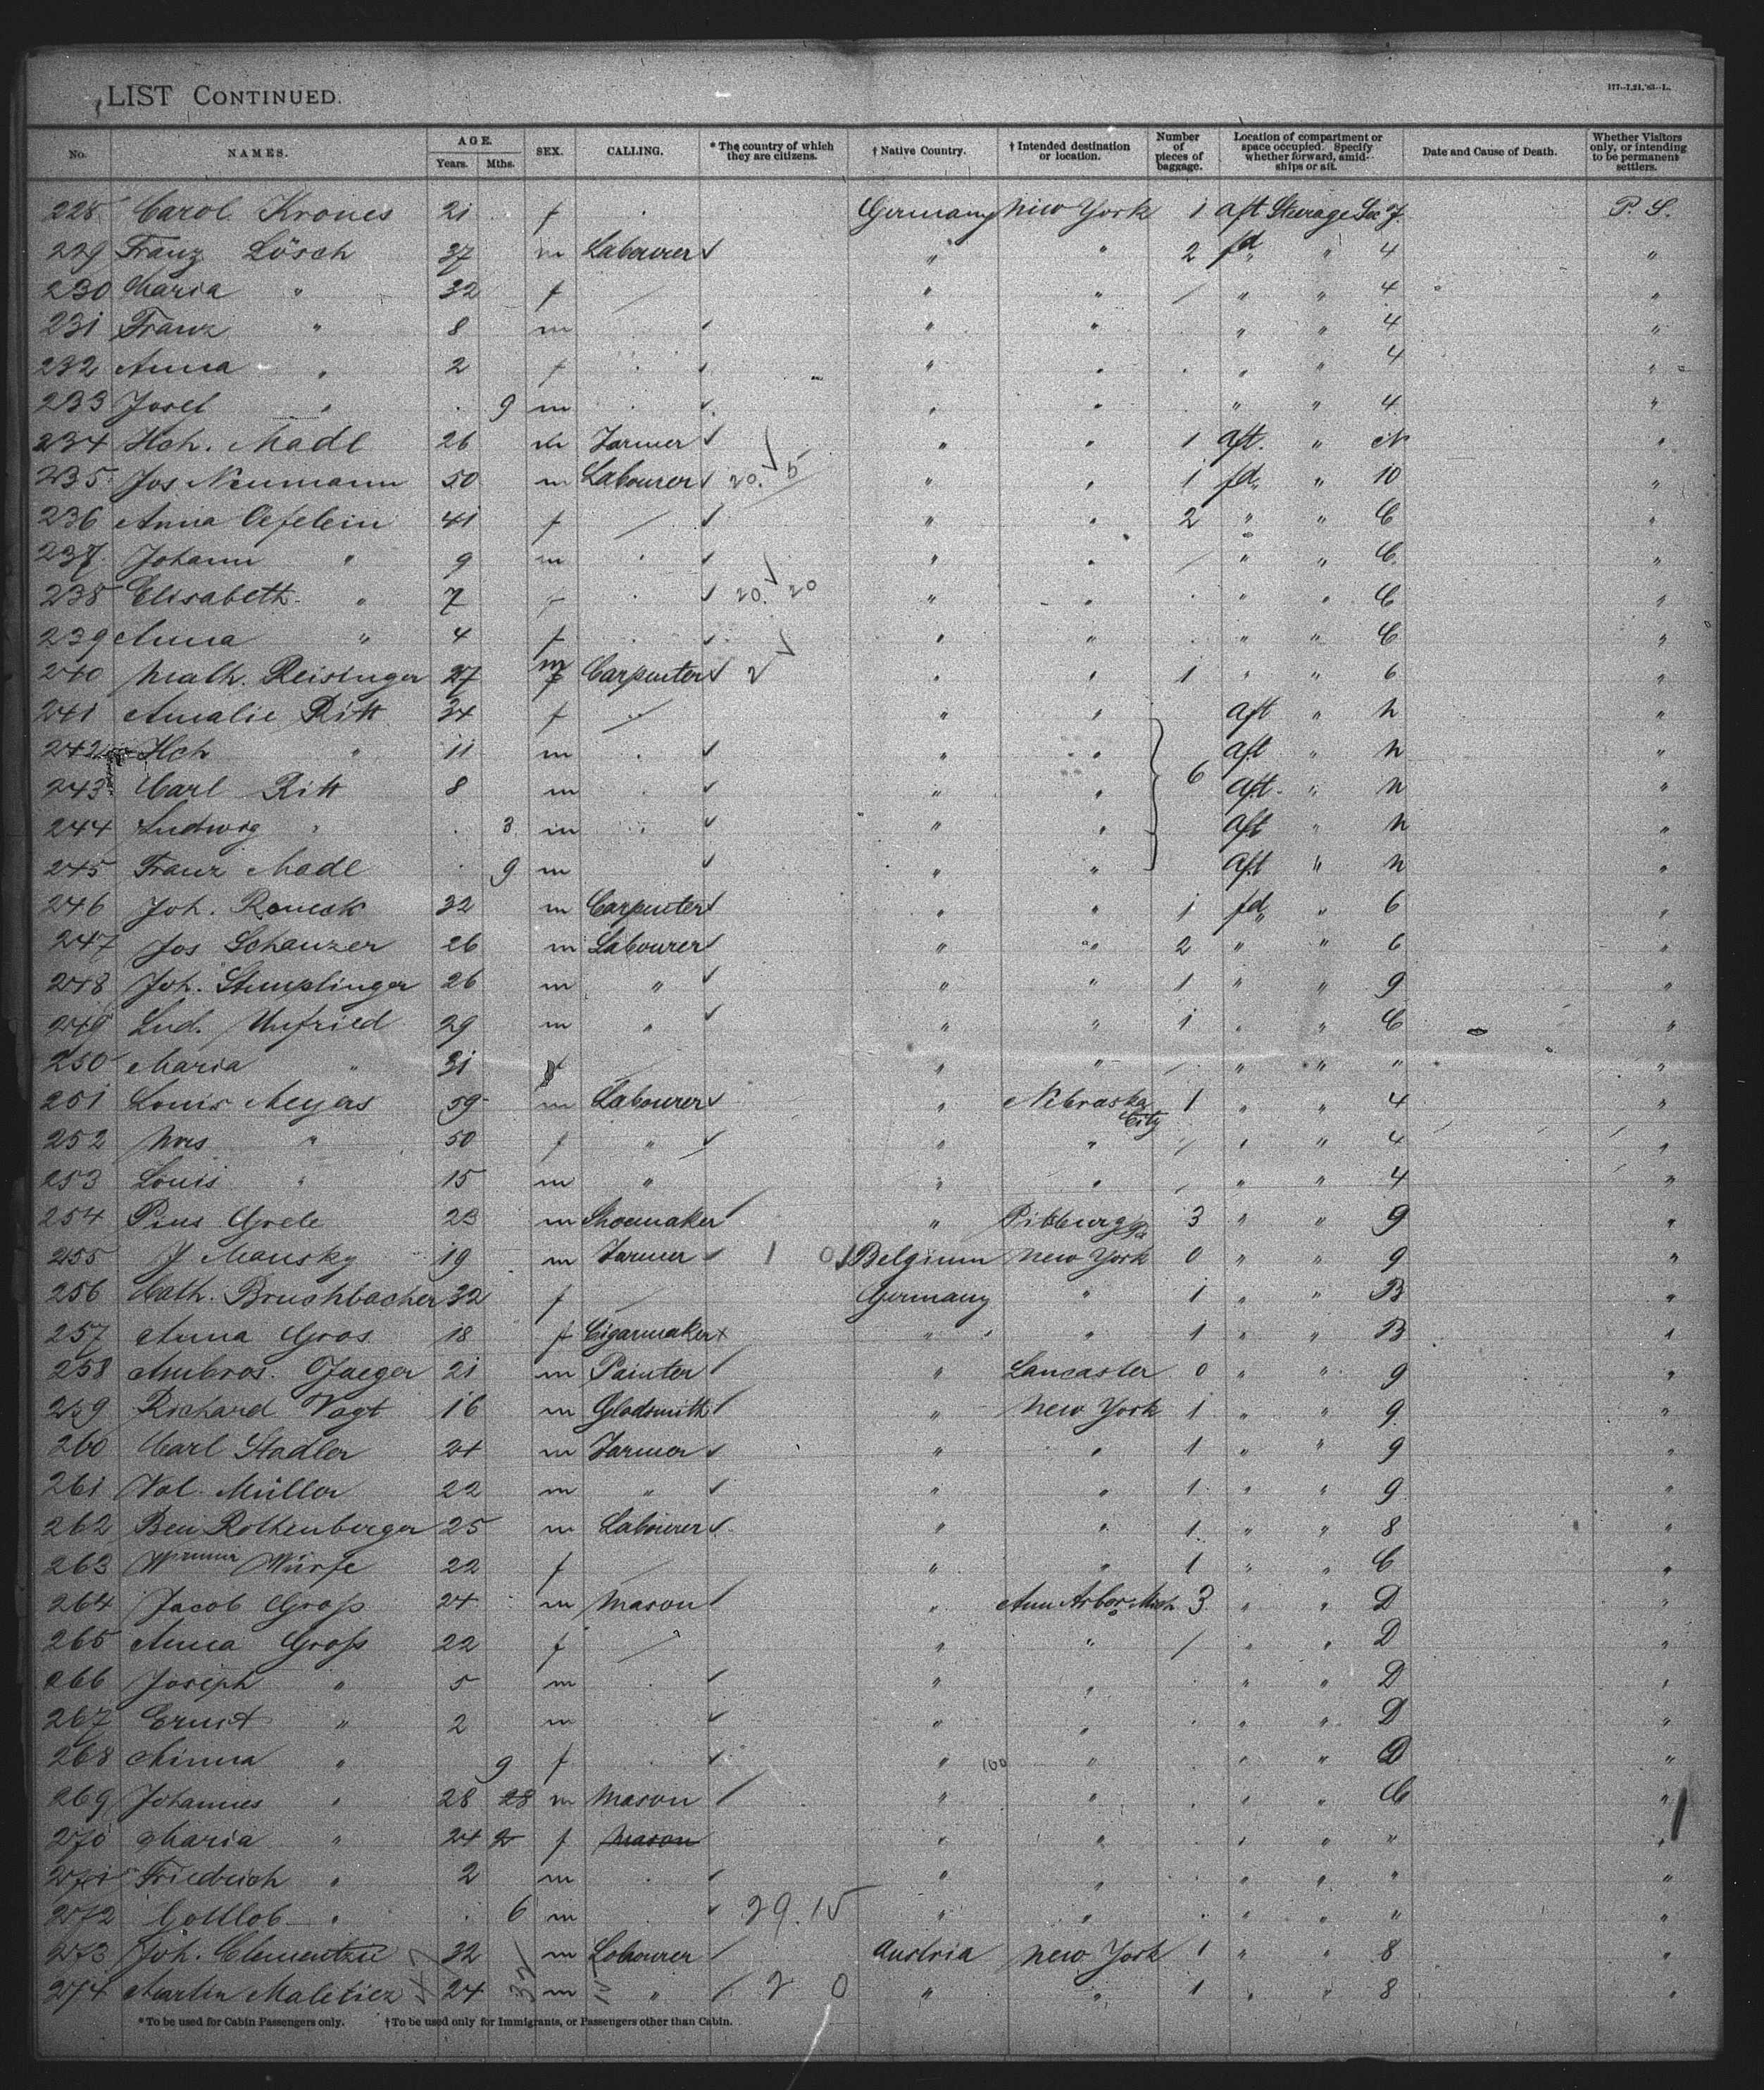 LIST CONTINUED.
117--I,21,'83--L.
No. NAMES. AGE. Years. Mths. SEX. CALLING. *The country of which they are citizens. †Native Country. †Intended destination or location. Number of pieces of baggage. Location of compartment or space occupied. Specify whether forward, amid-ships or aft. Date and Cause of Death. Whether Visitors only, or intending to be permanent settlers.
228 Carol Krones 21 f Germany New York 1 aft Steerage Sec P. S.
229 Franz Lösch 37 m Labourer " " 2 fd " 4 "
230 Maria " 32 f " " " " 4 "
231 Franz " 8 m " " " " 4 "
232 Anna " 2 f " " " " 4 "
233 Josef " 9 m " " " " 4 "
234 Hch. Madl 26 m Farmer " " 1 aft. " N "
235 Jos Neumann 50 m Labourer 20. 5 " " 1 fd " 10 "
236 Anna Oefelein 41 f " " 2 " " C "
237 Johann " 9 m " " " " C "
238 Elisabeth " 7 f 20. 20 " " " " C "
239 Anna " 4 f " " " " C "
240 Math. Reisinger 27 m Carpenter 2 " " 1 " " 6 "
241 Amalie Ritt 34 f " " aft " N "
242 Hch " 11 m " " aft " N "
243 Carl Ritt 8 m " " 6 aft " N "
244 Ludwig " 3 m " " aft " N "
245 Franz Madl 9 m " " aft " N "
246 Joh. 32 m Carpenter " " 1 fd " 6 "
247 Jos Schanzer 26 m Labourer " " 2 " " 6 "
248 Joh. Stemplinger 26 m " " " 1 " " 9 "
249 Lud. Unfried 29 m " " " 1 " " C "
250 Maria " 31 f " " " " " "
251 Louis Meyers 59 m Labourer " Nebraska City 1 " " 4 "
252 Mrs " 50 f " " " " " 4 "
253 Louis " 15 m " " " " " 4 "
254 Pius Grele 23 m Shoemaker " Pittburg Pa 3 " " 9 "
255 J Mansky 19 m Farmer 1 0 Belgium New York 0 " " 9 "
256 Cath. Bruchbacher 32 f Germany " 1 " " B "
257 Anna Gros 18 f Cigarmaker " " 1 " " B "
258 Ambros. Jaeger 21 m Painter " Lancaster 0 " " 9 "
259 Richard Vogt 16 m Glodsmith " New York 1 " " 9 "
260 Carl Stadler 24 m Farmer " " 1 " " 9 "
261 Val. Müller 22 m " " " 1 " " 9 "
262 Ben Rothenberger 25 m Labourer " " 1 " " 8 "
263 22 f " " 1 " " C "
264 Jacob Groß 24 m Mason " Ann Arbor Mich 3 " " D "
265 Anna Groß 22 f " " " " D "
266 Joseph " 5 m " " " " D "
267 Ernst " 2 m " " " " D "
268 Minna " 9 f " 100 " " " D "
269 Johannes " 28 28 m Mason " " " " C "
270 Maria " 24 2 f Mason " " " " " "
271 Friedrich " 2 m " " " " " "
272 Gottlob " 6 m 29.15 " " " " " "
273 Joh. 32 m Labourer Austria New York 1 " " 8 "
274 Martin Maleticz 24 m " 2 0 " " 1 " " 8 "
*To be used for Cabin Passengers only. †To be used only for Immigrants, or Passengers other than Cabin.